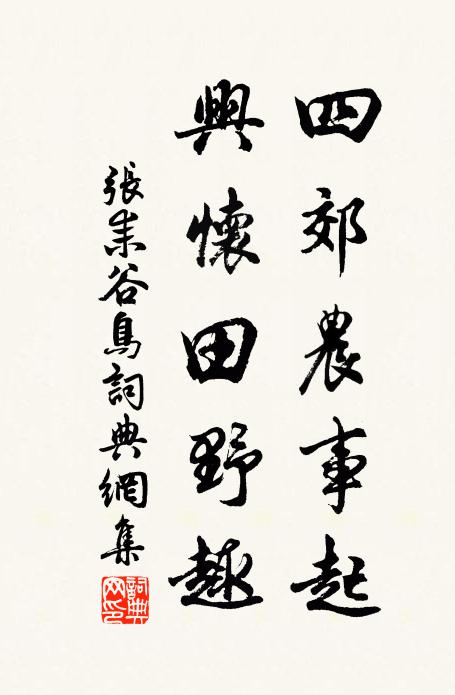 四郊農事起
興懷田野趣
張耒谷鳥詞典網集
詞典网印